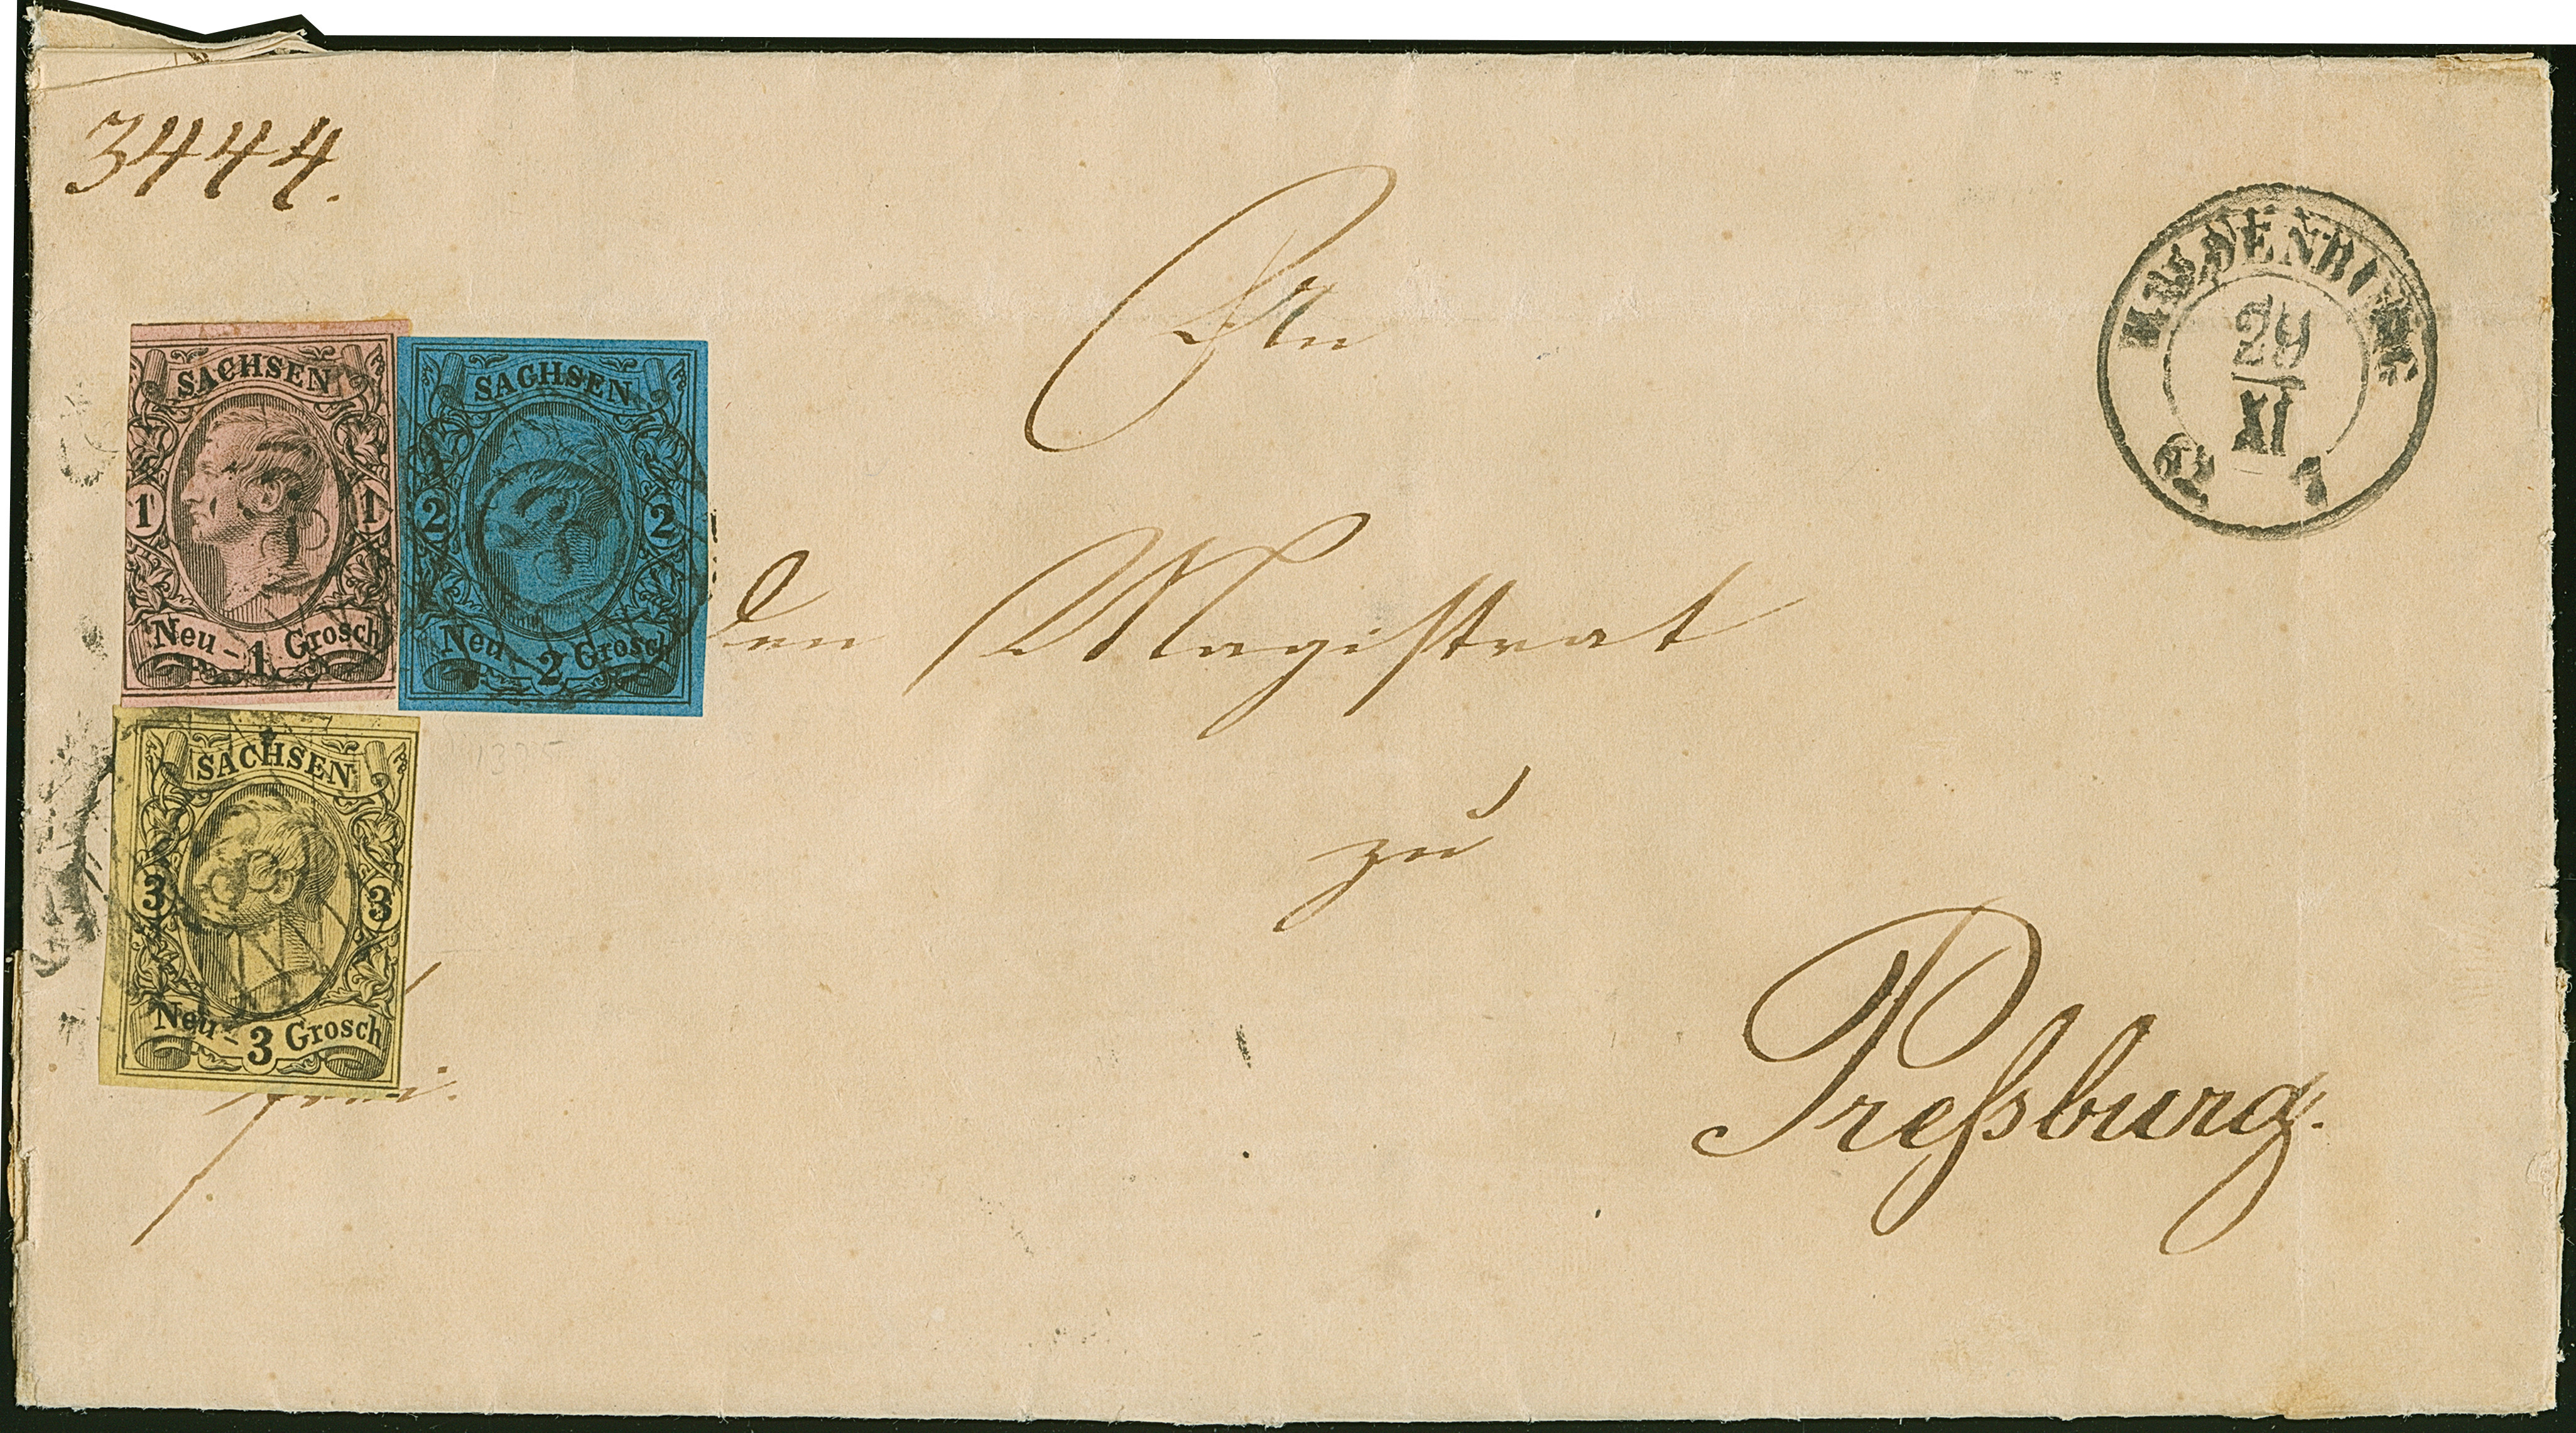 3444.
WALDENBURG
29
XI
7
SACHSEN
1 1
Neu-1 Grosch
SACHSEN
2 2
Neu-2 Grosch
An
den Magistrat
SACHSEN
3 3
Neu-3 Grosch
zu
Preßburg.
frei.